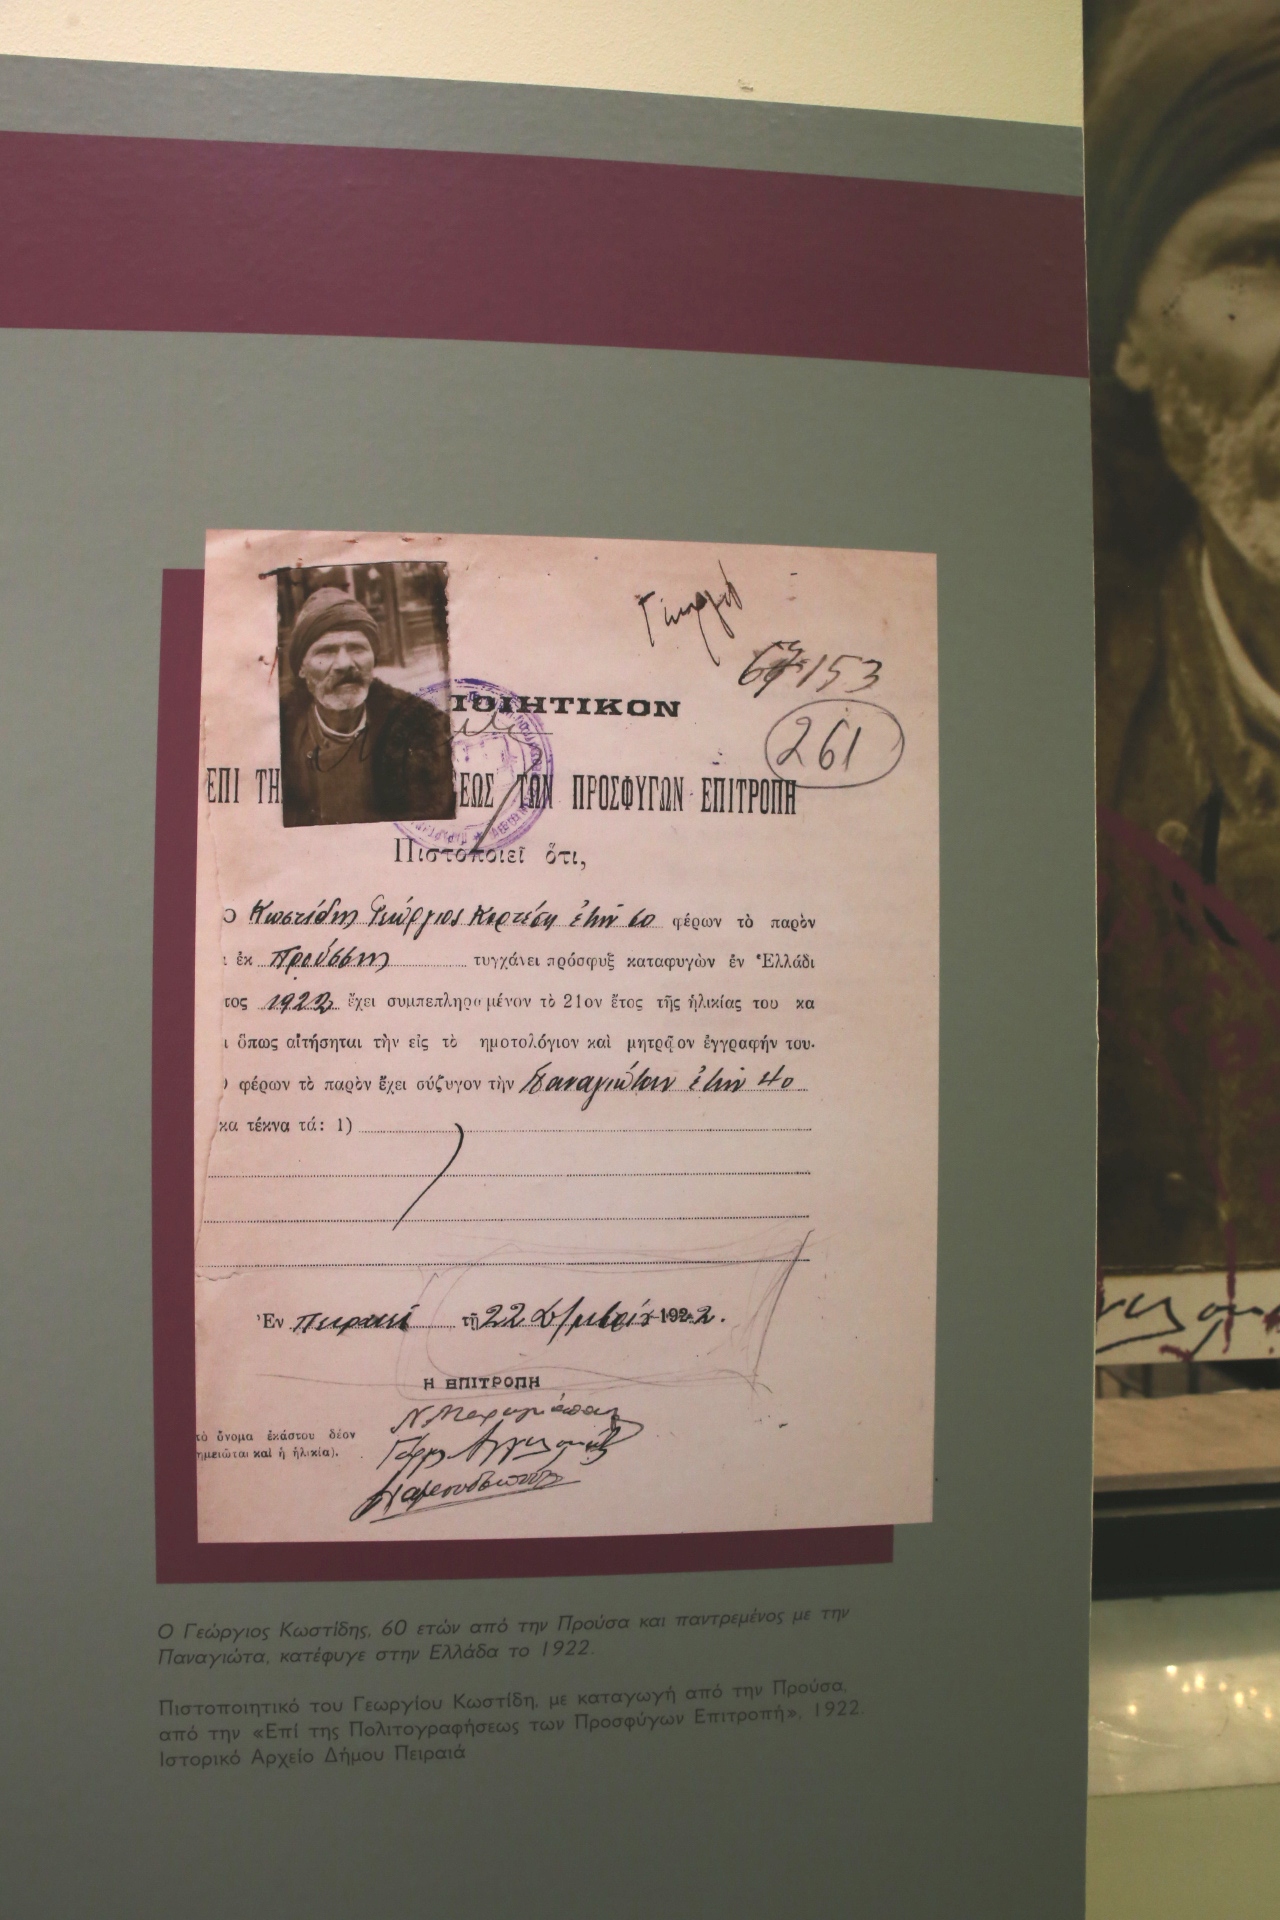 153
261
ΠΟΙΗΤΙΚΟΝ
ΕΠΙ ΤΗ ΕΩΣ ΤΩΝ ΠΡΟΣΦΥΓΩΝ ΕΠΙΤΡΟΠΗ
Πιστοποιεῖ ὅτι,
Ο Κωστίδης Γεώργιος ἐτῶν 60 φέρων τὸ παρὸν
ἐκ Προύσσης τυγχάνει πρόσφυξ καταφυγὼν ἐν Ἑλλάδι
τος 1922 ἔχει συμπεπληρωμένον τὸ 21ον ἔτος τῆς ἡλικίας του κα
ι ὅπως αἰτήσηται τὴν εἰς τὸ ημοτολόγιον καὶ μητρῷον ἐγγραφήν του.
φέρων τὸ παρὸν ἔχει σύζυγον τὴν Παναγιώταν ἐτῶν 40
κα τέκνα τά: 1)
Ἐν Πειραιεῖ τῇ 22 1922.
Η ΕΠΙΤΡΟΠΗ
τὸ ὄνομα ἑκάστου δέον
ημειῶται καὶ ἡ ἡλικία).
Ο Γεώργιος Κωστίδης, 60 ετών από την Προύσα και παντρεμένος με την
Παναγιώτα, κατέφυγε στην Ελλάδα το 1922.
Πιστοποιητικό του Γεωργίου Κωστίδη, με καταγωγή από την Προύσα,
από την «Επί της Πολιτογραφήσεως των Προσφύγων Επιτροπή», 1922.
Ιστορικό Αρχείο Δήμου Πειραιά